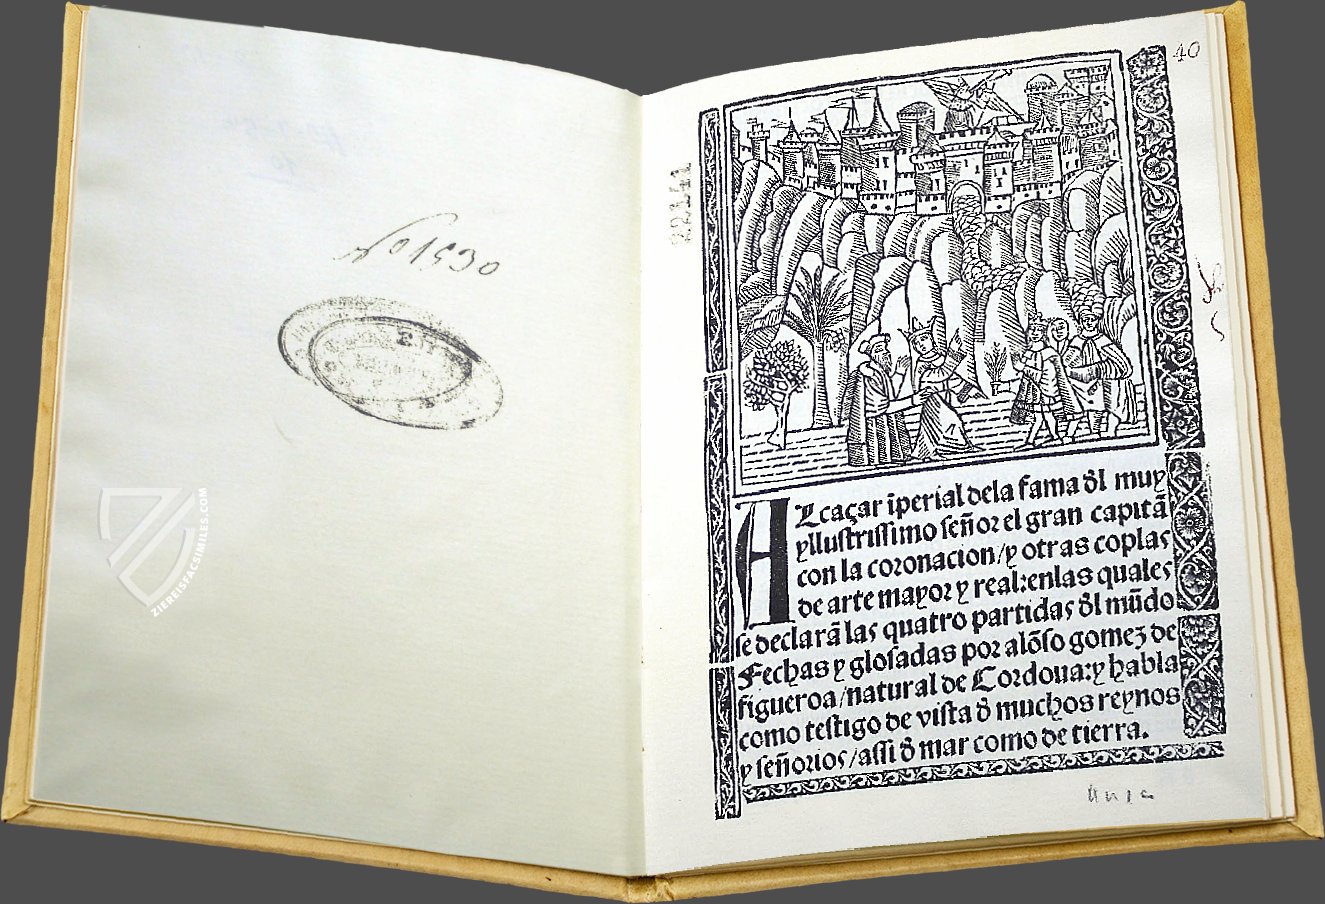 No 1530
ZIEREISFACSIMILES.COM
40
22141
ALcaçar īperial dela fama đl muy
yllustrissimo señor el gran capitã
con la coronacion/y otras coplas
de arte mayor y real:enlas quales
se declarã las quatro partidas đl mũdo
Fechas y glosadas por alõso gomez de
figueroa/natural de Cordoua:y habla
como testigo de vista đ muchos reynos
y señorios/assi đ mar como de tierra.